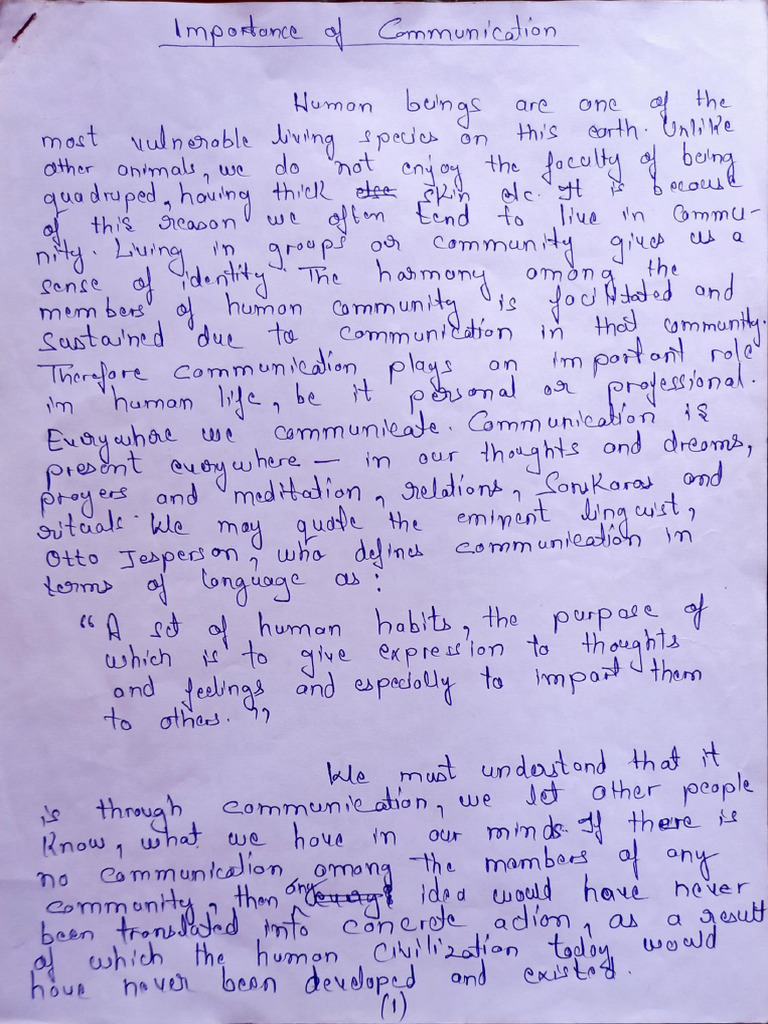 Importance of Communication
Human beings are one of the
most vulnerable living species on this earth. Unlike
other animals, we do not enjoy the faculty of being
quadruped, having thick skin etc. It is because
of this reason we often tend to live in commu-
nity. Living in groups or community gives us a
sense of identity. The harmony among the
members of human community is facilitated and
sustained due to communication in that community.
Therefore communication plays an important role
in human life, be it personal or professional.
Everywhere we communicate. Communication is
present everywhere — in our thoughts and dreams,
prayers and meditation, relations, Sanskaras and
rituals. We may quote the eminent linguist,
Otto Jesperson, who defines communication in
terms of language as:
“A set of human habits, the purpose of
which is to give expression to thoughts
and feelings and especially to impart them
to others.”
We must understand that it
is through communication, we let other people
know, what we have in our minds. If there is
no communication among the members of any
community, then any idea would have never
been translated into concrete action, as a result
of which the human civilization today would
have never been developed and existed.
(1)